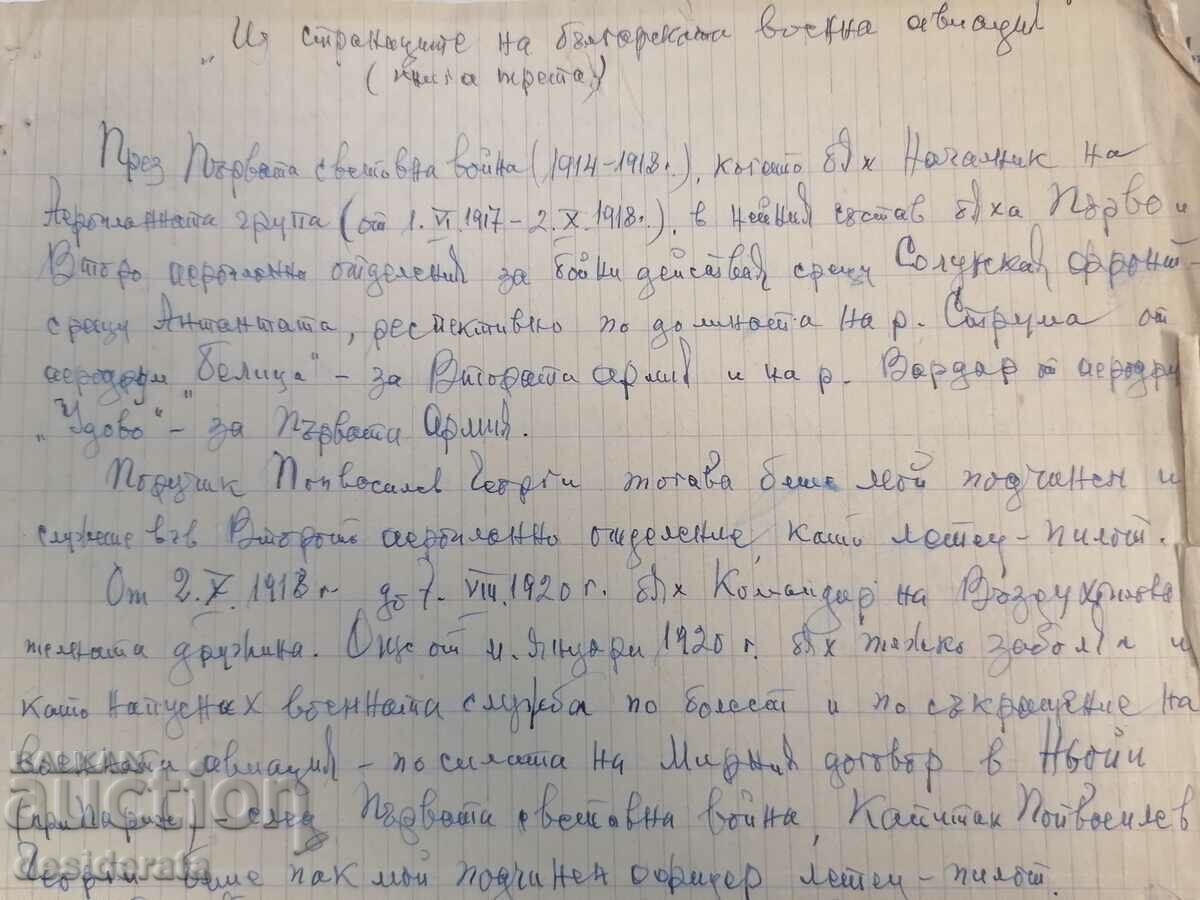 „Из страниците на българската военна авиация
(книга трета)
През Първата световна война (1914–1918 г.), когато бях Началник на
Аеропланната група (от 1.VI.1917 – 2.X.1918 г.), в нейния състав бяха Първо и
Второ аеропланни отделения за бойни действия срещу Солунския фронт –
срещу Антантата, респективно по долината на р. Струма от
аеродрум „Белица" – за Втората армия и на р. Вардар от аеродрум
„Удово" – за Първата Армия.
Поручик Попвасилев Георги тогава беше мой подчинен и
служеше във Второто аеропланно отделение, като летец – пилот.
От 2.X.1918 г. до 7.VIII.1920 г. бях Командир на Въздухоплава
телната дружина. Още от м. Януари 1920 г. бях тежко заболял и
като напуснах военната служба по болест и по съкращение на
военната авиация – по силата на Мирния договор в Ньойи
(при Париж) – след Първата световна война, Капитан Попвасилев
Георги беше пак мой подчинен офицер летец – пилот.
BALKAN
auction
desiderata